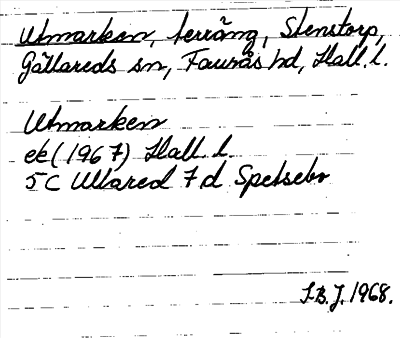 Utmarken, terräng, Stenstorp,
Gällareds sn, Faurås hd, Hall. l.
Utmarken
ek (1967) Hall. l.
5C Ullared 7d Spetsebo
I.B.J. 1968.